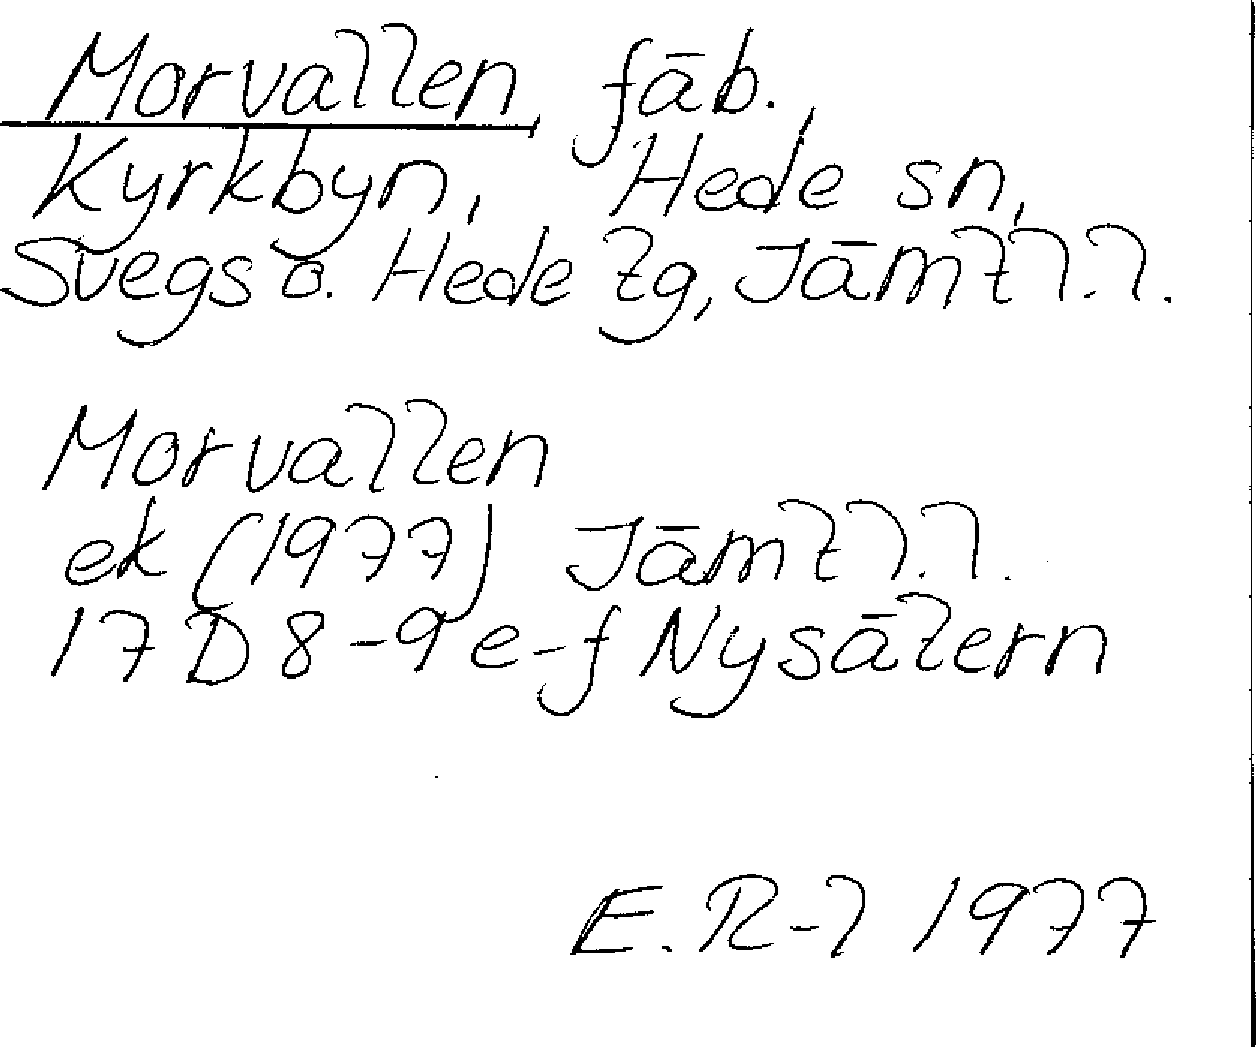 Morvallen, fäb.,
Kyrkbyn, Hede sn,
Svegs o. Hede tg, Jämtl.l.
Morvallen
ek (1977) Jämtl.l.
17D 8-9 e-f Nysätern
E. R-l 1977